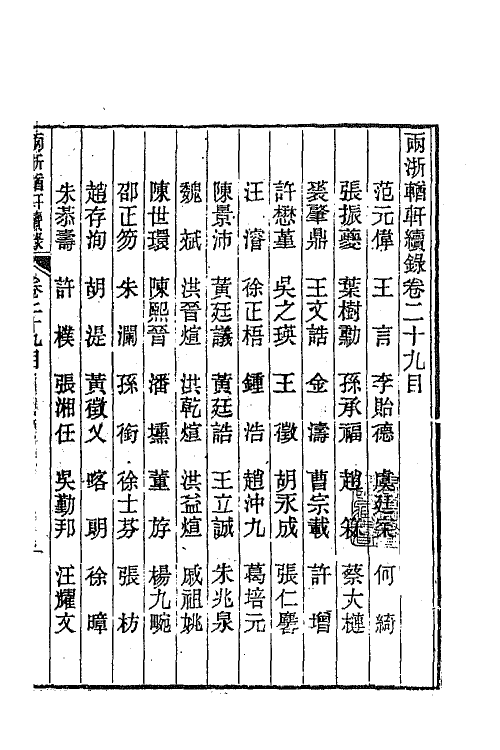 兩浙輶軒續錄卷二十九目
范元偉 王言 李貽德 虞廷寀 何綺
張振夔 葉樹勳 孫承福 趙 蔡大槤
裴肇鼎 王文誥 金濤 曹宗載 許增
許懋堇 吳之瑛 王徵 胡永成 張仁
汪濬 徐正梧 鍾浩 趙沖九 葛培元
陳景沛 黃廷議 黃廷誥 王立誠 朱兆泉
魏斌 洪晉煊 洪乾煊 洪益煊 戚祖姚
陳世環 陳熙晉 潘壎 董斿 楊九畹
邵正笏 朱瀾 孫銜 徐士芬 張枋
趙存洵 胡湜 黃徵乂 喀明 徐暲
朱恭壽 許樸 張湘任 吳勤邦 汪耀文
兩浙輶軒續錄 卷二十九目